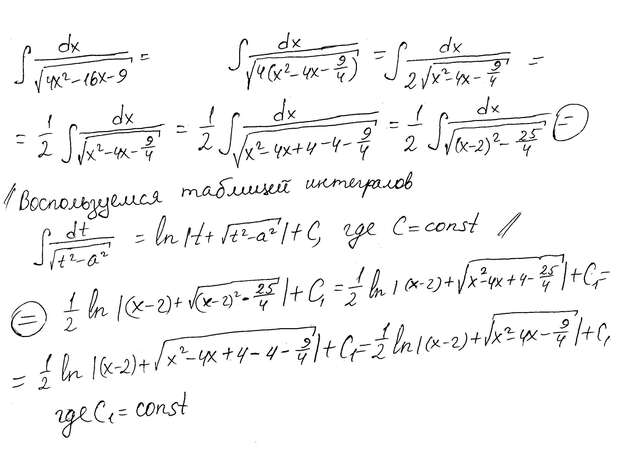 ∫ dx/√(4x²-16x-9) = ∫ dx/√(4(x²-4x-9/4)) = ∫ dx/(2√(x²-4x-9/4)) =
= 1/2 ∫ dx/√(x²-4x-9/4) = 1/2 ∫ dx/√(x²-4x+4-4-9/4) = 1/2 ∫ dx/√((x-2)²-25/4) =
// Воспользуемся таблицей интегралов
∫ dt/√(t²-a²) = ln|t+√(t²-a²)|+C, где C=const //
= 1/2 ln|(x-2)+√((x-2)²-25/4)|+C₁ = 1/2 ln|(x-2)+√(x²-4x+4-25/4)|+C₁=
= 1/2 ln|(x-2)+√(x²-4x+4-4-9/4)|+C₁=1/2 ln|(x-2)+√(x²-4x-9/4)|+C₁
где C₁=const